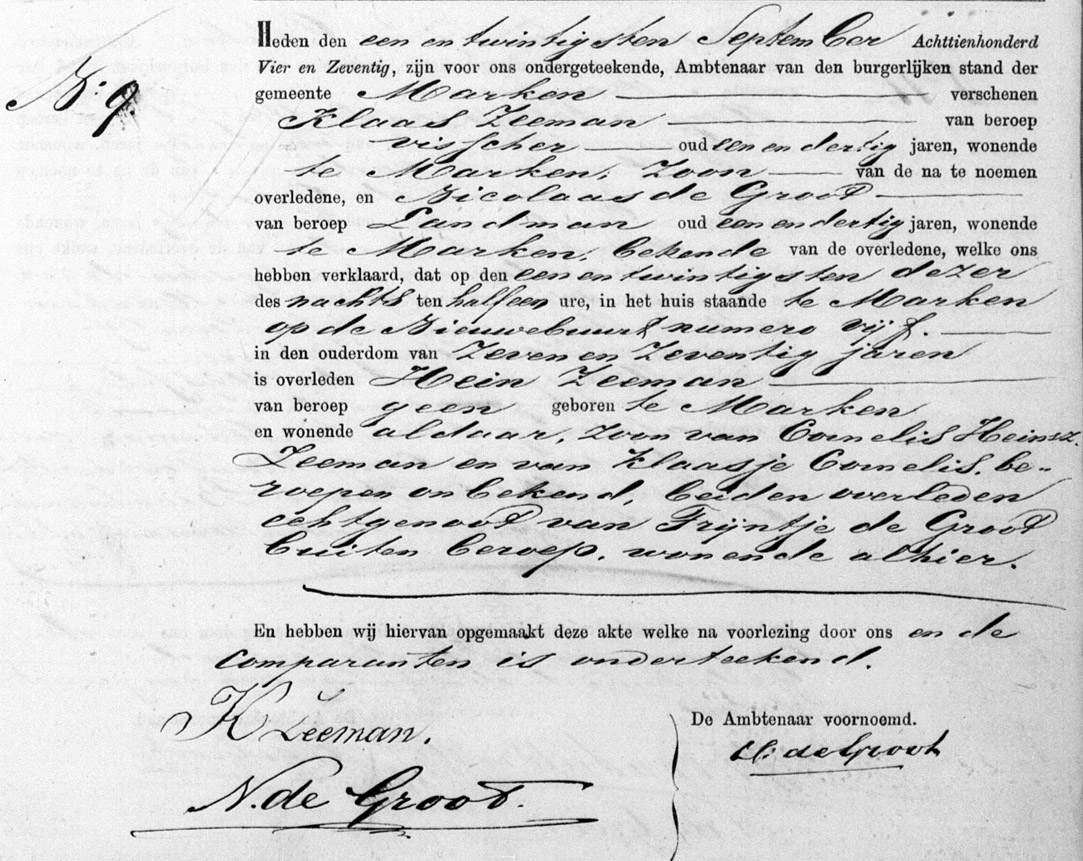 Heden den een en twintigsten September Achttienhonderd
Vier en Zeventig, zijn voor ons ondergeteekende, Ambtenaar van den burgerlijken stand der
N: 9
gemeente Marken verschenen
Klaas Zeeman van beroep
visscher oud een en dertig jaren, wonende
te Marken, Zoon van de na te noemen
overledene, en Nicolaas de Groot
van beroep Landman oud een en dertig jaren, wonende
te Marken, bekende van de overledene, welke ons
hebben verklaard, dat op den een en twintigsten dezer
des nachts ten half een ure, in het huis staande te Marken
op de Nieuwebuurt numero vijf.
in den ouderdom van Zeven en Zeventig jaren
is overleden Hein Zeeman
van beroep geen geboren te Marken
en wonende aldaar, zoon van Cornelis Heinsz.
Zeeman en van Klaasje Cornelis, be-
roepen onbekend, beiden overleden
echtgenoot van Trijntje de Groot
buiten beroep, wonende alhier.
En hebben wij hiervan opgemaakt deze akte welke na voorlezing door ons en de
Comparanten is onderteekend.
K Zeeman.
De Ambtenaar voornoemd.
de Groot
N. de Groot.